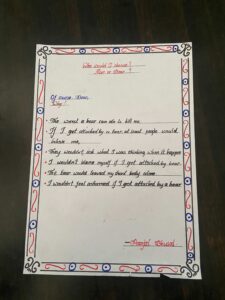 Who would I choose?
Man or Bear?
Of course Bear.
Why?
• The worst a bear can do is kill me.
• If I get attacked by a bear, at least people would
believe me.
• They wouldn't ask what I was thinking when it happen
• I wouldn't blame myself if I got attacked by bear.
• The bear would leave my dead body alone.
• I wouldn't feel ashamed if I got attacked by a bear